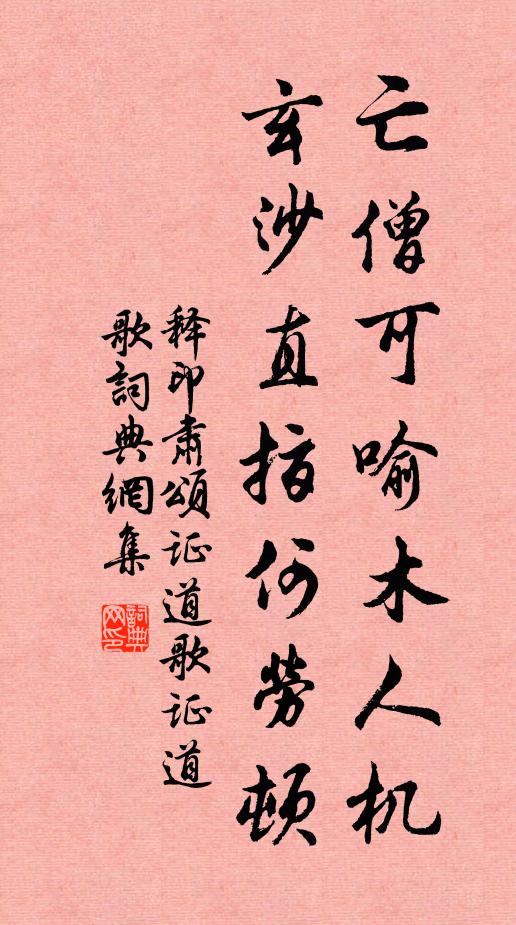 亡僧可喻木人机
玄沙直指何劳顿
释印肃颂证道歌证道
歌词典网集
詞典网印